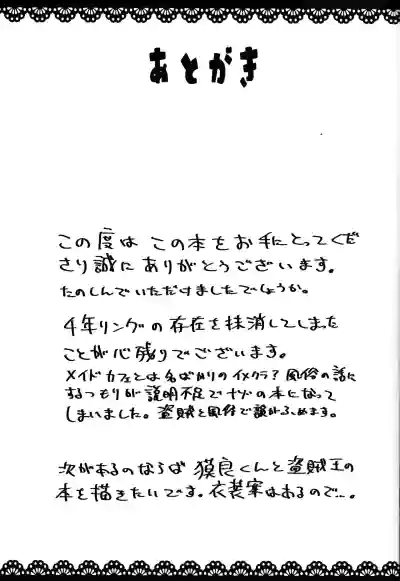 あとがき
この度は この本をお手にとってくだ
さり誠にありがとうございます。
たのしんでいただけましたでしょうか。
4年リングの存在を抹消してしまった
ことが心残りでございます。
メイドカフェとは名ばかりのイメクラ?風俗の話に
するつもりが説明不足でナゾの本になって
しまいました。盗賊を風俗で
次があるのならば 獏良くんと盗賊王の
本を描きたいです。衣装案はあるので…。